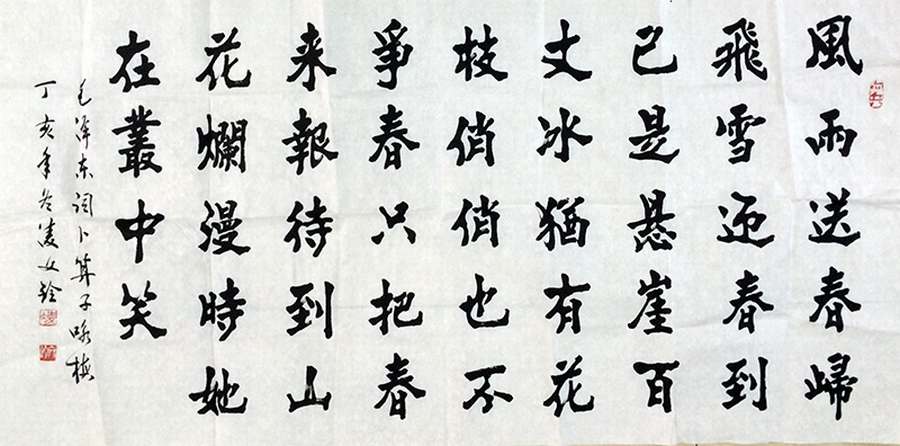 風雨送春歸
飛雪迎春到
已是悬崖百
丈冰猶有花
枝俏俏也不
爭春只把春
来報待到山
花爛漫時她
在叢中笑
毛泽东词卜算子咏梅
丁亥年冬凌文